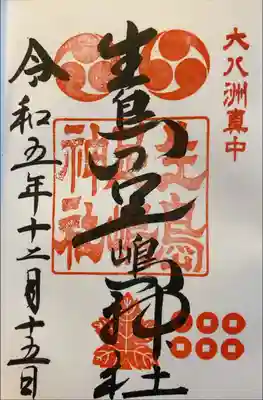 大八洲真中
生島足嶋神社
生島
足嶋
神社
令和五年十二月十五日